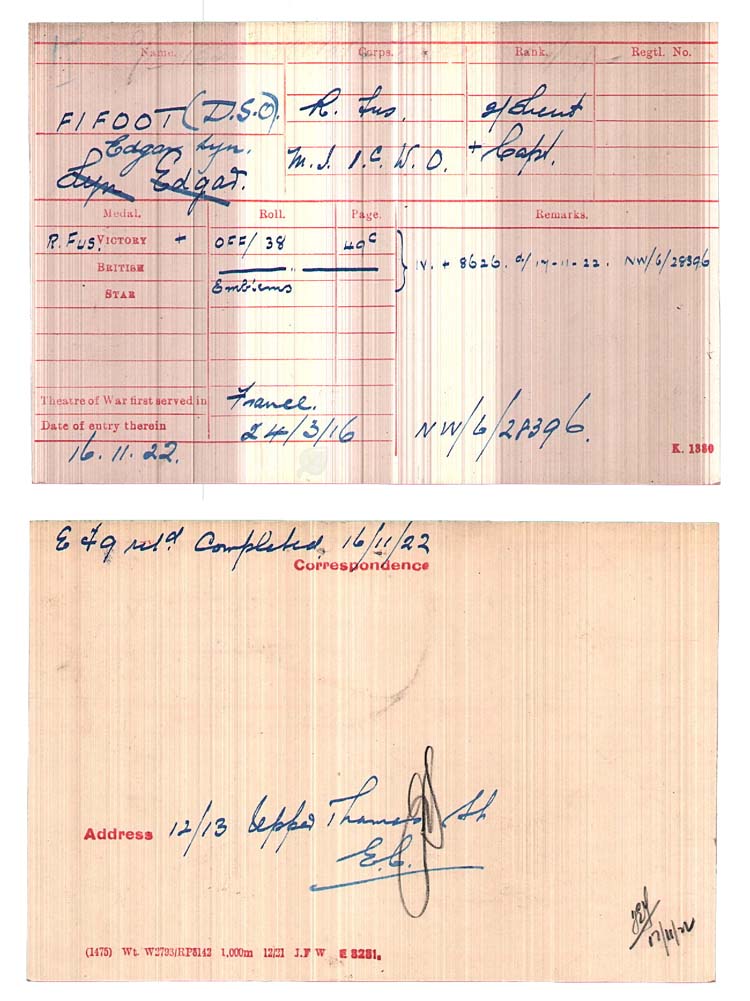 Name. Corps. Rank. Regtl. No.
FIFOOT (D.S.O). R. Fus. 2/Lieut
Edgar Lyn. M.I. I.C. W.O. + Capt.
Lyn Edgar.
Medal. Roll. Page. Remarks.
R. FUS. VICTORY + OFF/ 38 49c
BRITISH " IV. + 8626. d/ 17-11-22. NW/6/28396
STAR Emblems
Theatre of War first served in France.
Date of entry therein 24/3/16 NW/6/28396.
16.11.22. K. 1380
E F 9 retd. Completed 16/11/22
Correspondence
Address 12/13 Upper Thames St
E.C.
(1475) Wt. W2793/RP8142 1,000m 12/21 J.F W E 8251.